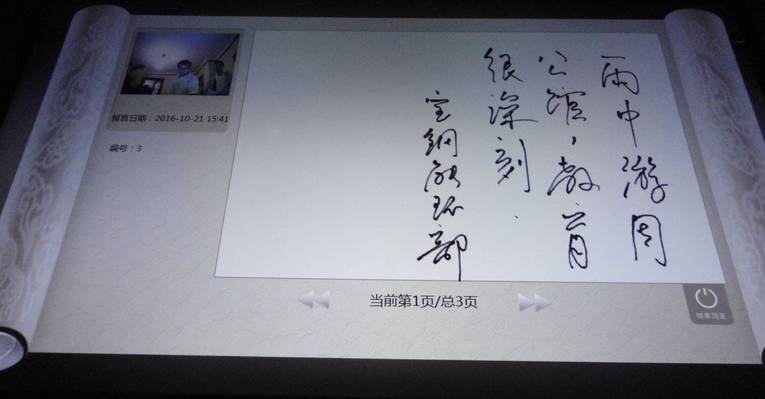 雨中游周
公馆，教育
很深刻.
宝钢能环部
留言日期：2016-10-21 15:41
编号：3
当前第1页/总3页